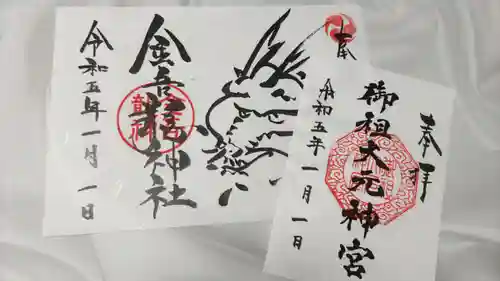 奉
金吾龍神社
令和五年一月一日
奉拝
御祖大元神宮
令和五年一月一日